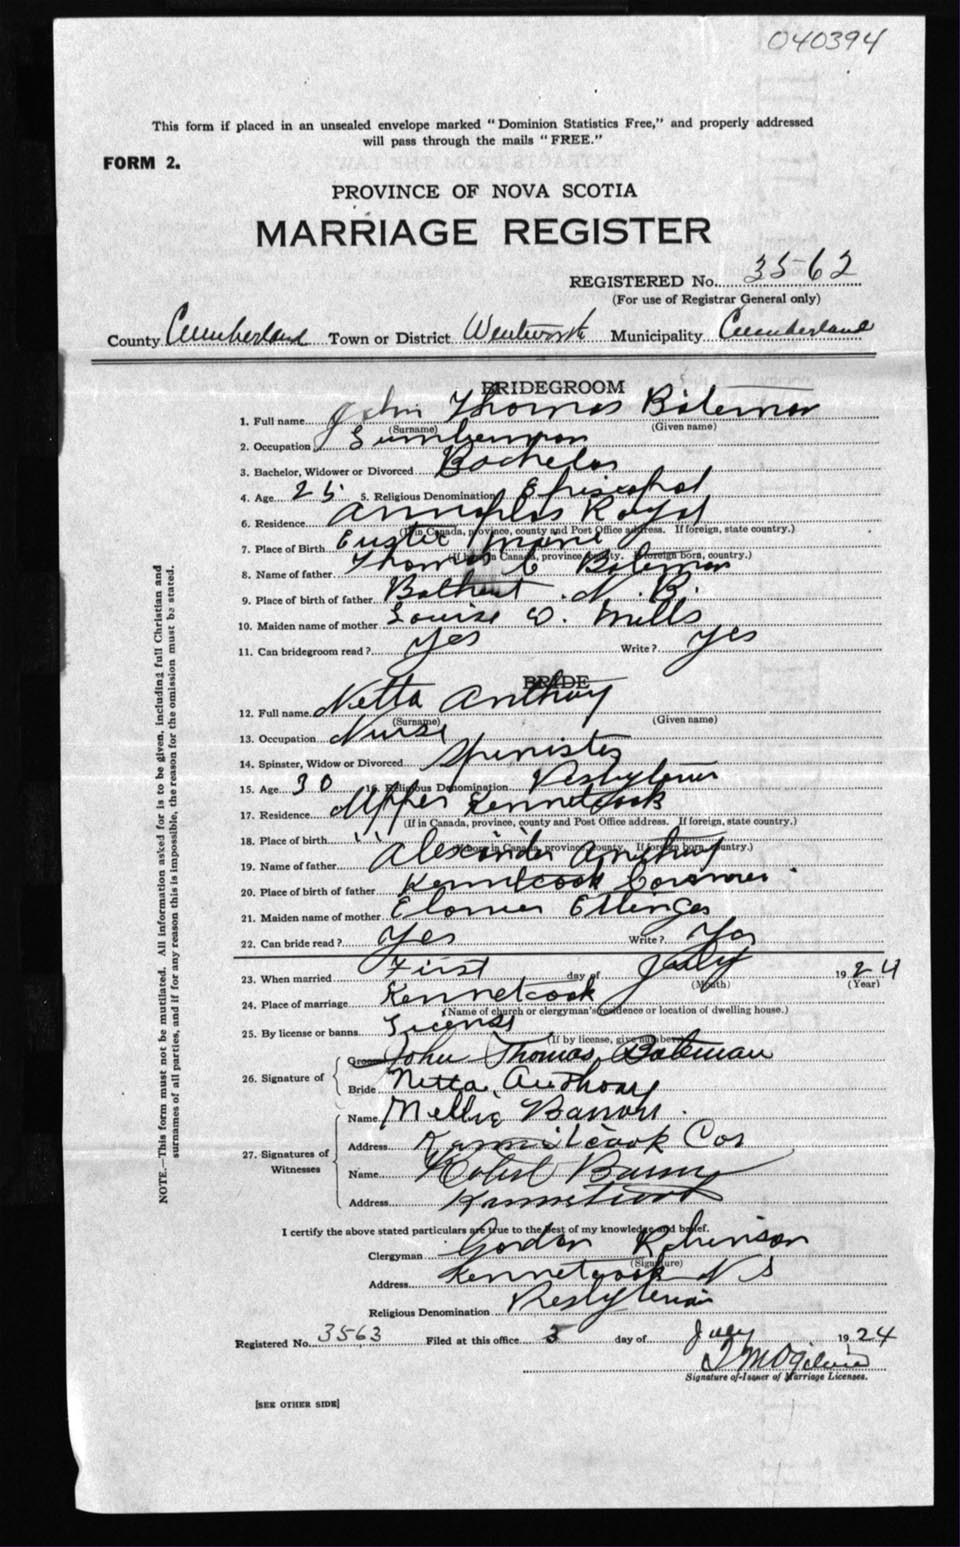 040394
This form if placed in an unsealed envelope marked "Dominion Statistics Free," and properly addressed
will pass through the mails "FREE."
FORM 2.
PROVINCE OF NOVA SCOTIA
MARRIAGE REGISTER
REGISTERED No. 3562
(For use of Registrar General only)
County Cumberland Town or District Wentworth Municipality Cumberland
BRIDEGROOM
1. Full name John Thomas Bateman
(Surname) (Given name)
2. Occupation Lumberman
3. Bachelor, Widower or Divorced Bachelor
4. Age 25 5. Religious Denomination Episcopal
6. Residence Annapolis Royal
(If in Canada, province, county and Post Office address. If foreign, state country.)
7. Place of Birth Maine
(If born in Canada, province, county. If foreign born, country.)
8. Name of father Thomas C Bateman
9. Place of birth of father Bathurst N. B.
10. Maiden name of mother Louise D. Mills
11. Can bridegroom read? Yes Write? Yes
BRIDE
12. Full name Netta Anthony
(Surname) (Given name)
13. Occupation Nurse
14. Spinster, Widow or Divorced Spinister
15. Age 30 16. Religious Denomination Presbyterian
17. Residence Upper Kennetcook
(If in Canada, province, county and Post Office address. If foreign, state country.)
18. Place of birth " "
(If born in Canada, province, county. If foreign born, country.)
19. Name of father Alexander Anthony
20. Place of birth of father Kennetcook Corner
21. Maiden name of mother Ettinger
22. Can bride read? Yes Write? Yes
23. When married First day of July 1924
(Month) (Year)
24. Place of marriage Kennetcook
(Name of church or clergyman's residence or location of dwelling house.)
25. By license or banns License
(If by license, give number)
26. Signature of Groom John Thomas Bateman
Bride Netta Anthony
27. Signatures of Witnesses
Name Nellie Barron
Address Kennetcook Cor
Name Robert
Address Kennetcook
I certify the above stated particulars are true to the best of my knowledge and belief.
Clergyman Gordon Robinson
(Signature)
Address Kennetcook N S
Religious Denomination Presbyterian
Registered No. 3563 Filed at this office 3 day of July 1924
T M Ogilvie
Signature of Issuer of Marriage Licenses.
[SEE OTHER SIDE]
NOTE.—This form must not be mutilated. All information asked for is to be given, including full Christian and
surnames of all parties, and if for any reason this is impossible, the reason for the omission must be stated.